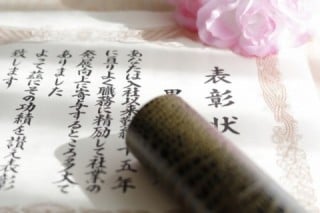 表彰状
あなたは入社以来
五年
に亘りよく職務に精励して社業の
発展向上に寄与するところ大で
ありました
よって茲にその功績を讃え表彰
致します